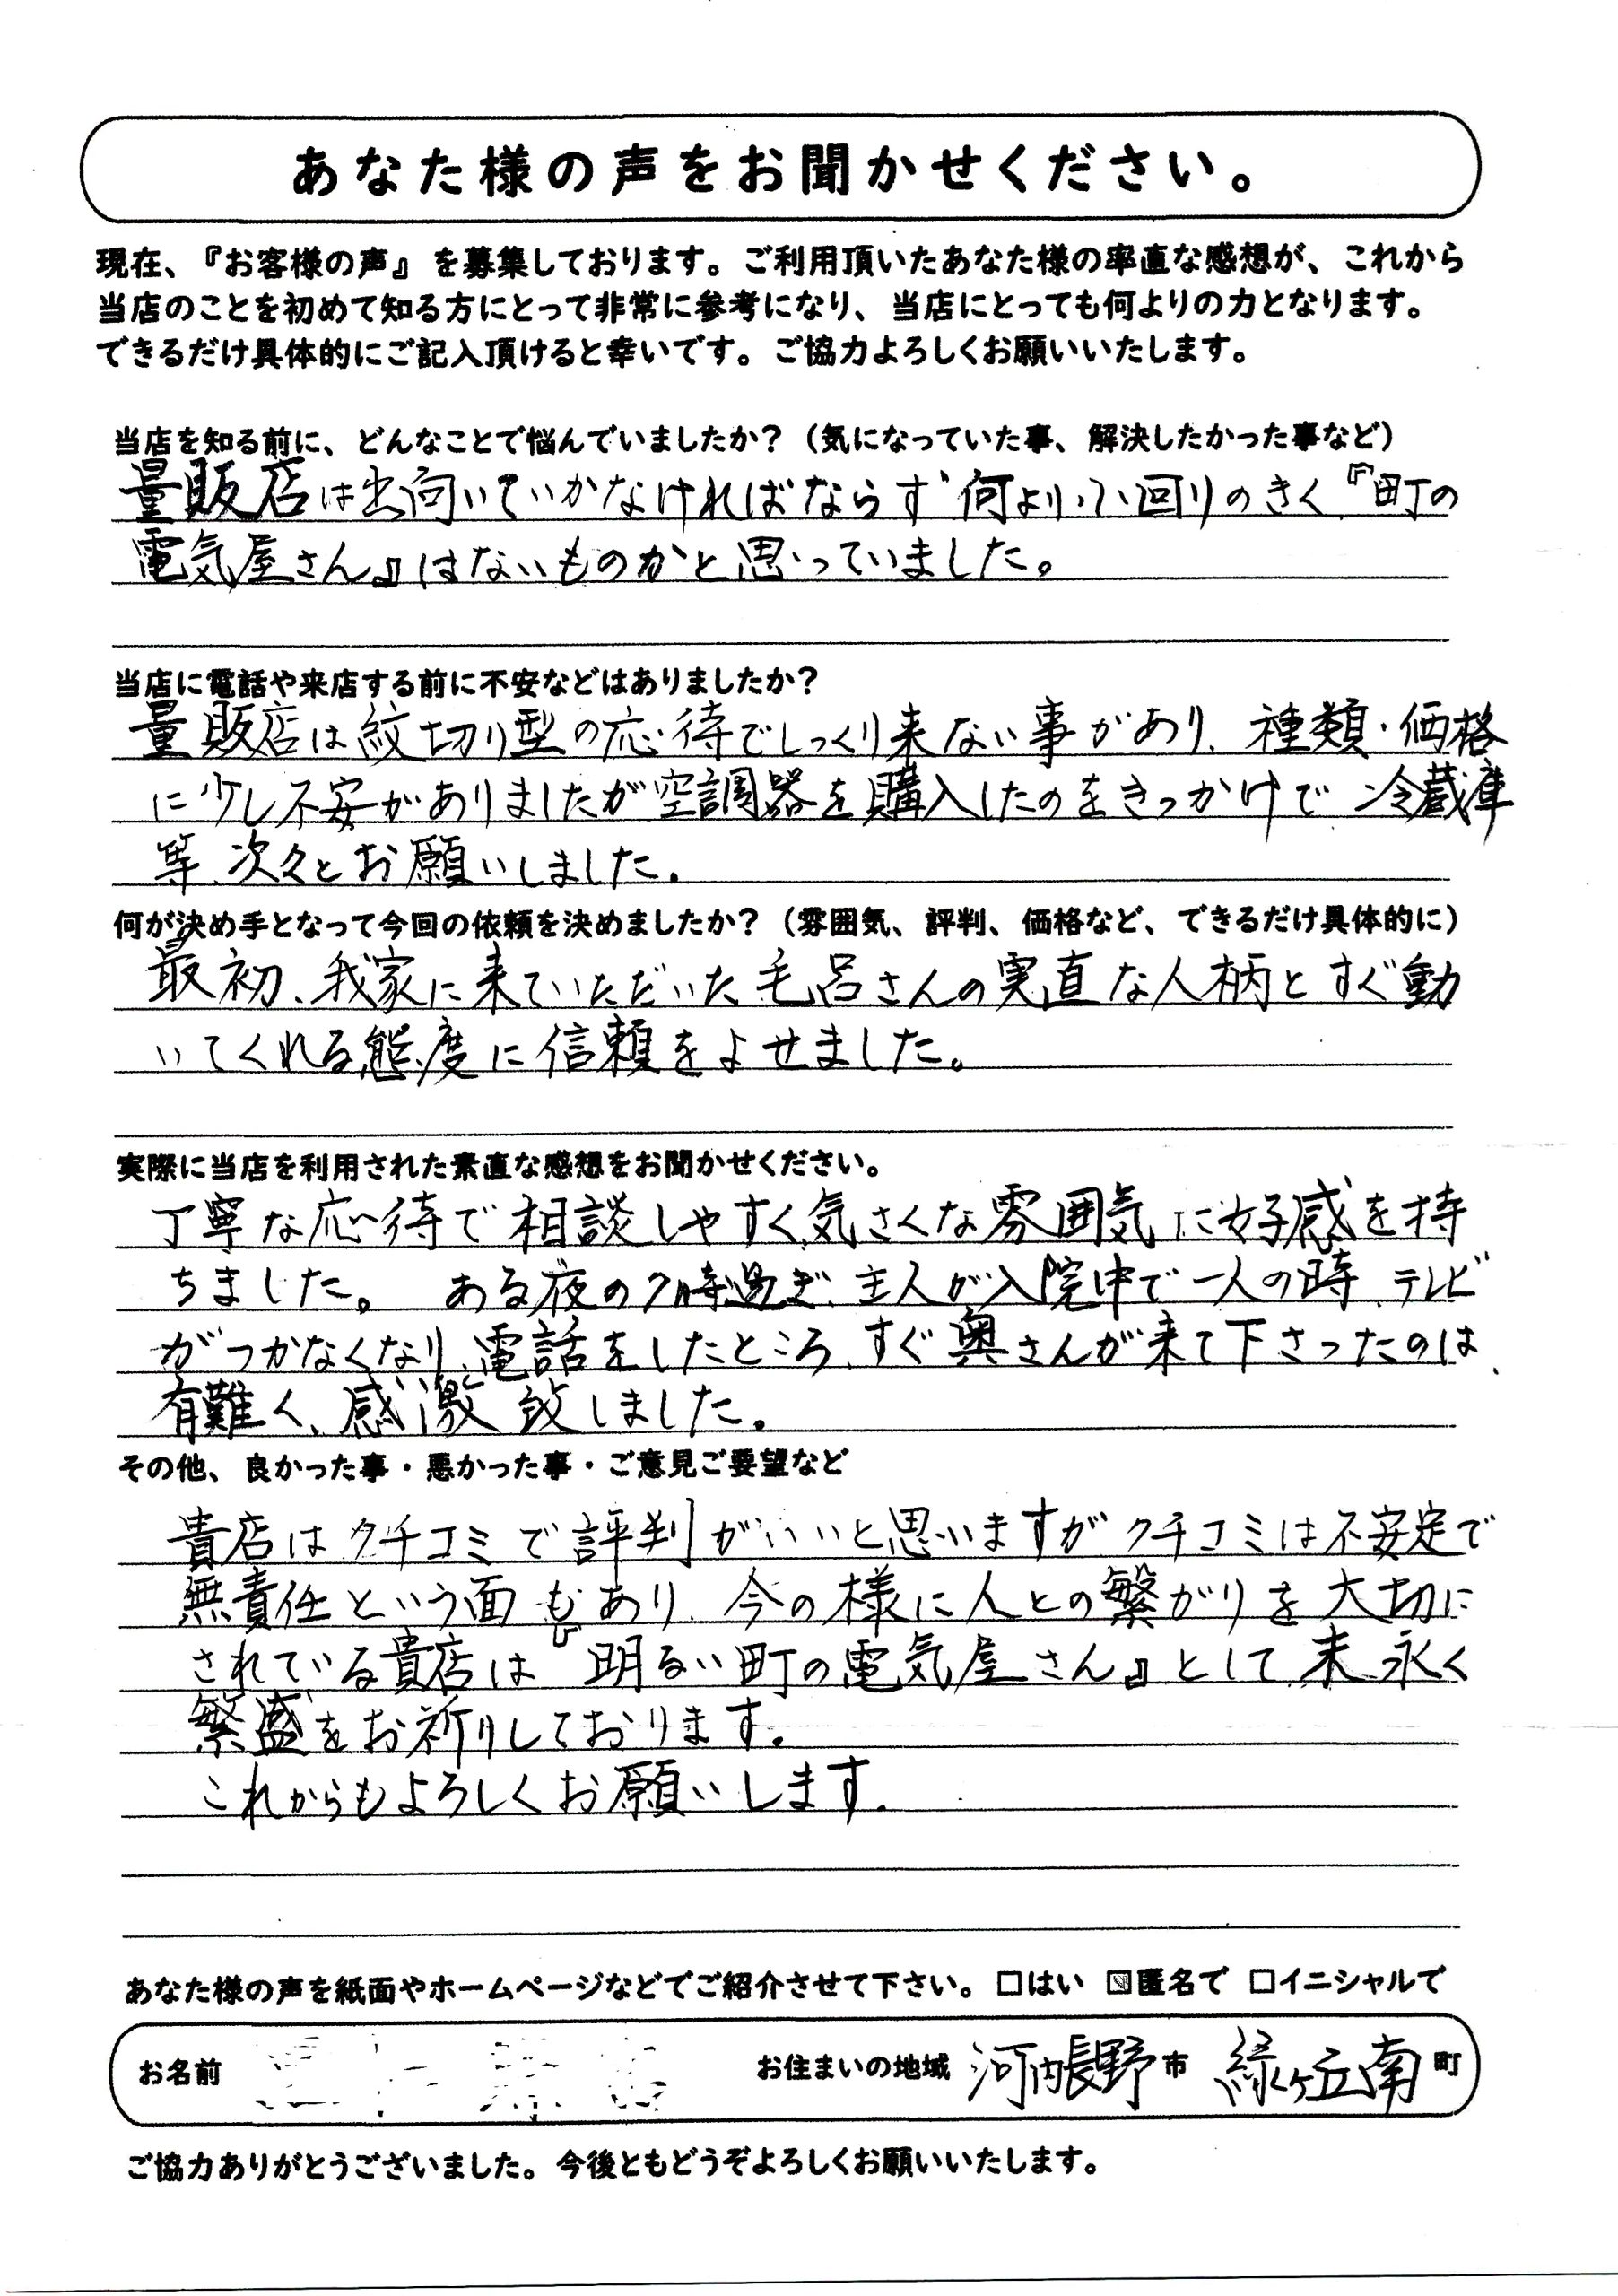 あなた様の声をお聞かせください。
現在、『お客様の声』を募集しております。ご利用頂いたあなた様の率直な感想が、これから
当店のことを初めて知る方にとって非常に参考になり、当店にとっても何よりの力となります。
できるだけ具体的にご記入頂けると幸いです。ご協力よろしくお願いいたします。
当店を知る前に、どんなことで悩んでいましたか？（気になっていた事、解決したかった事など）
量販店は出向いていかなければならず 何より小回りのきく『町の
電気屋さん』はないものかと思っていました。
当店に電話や来店する前に不安などはありましたか？
量販店は紋切り型の応待でしっくり来ない事があり、種類・価格
に少し不安がありましたが空調器を購入したのをきっかけで 冷蔵庫
等、次々とお願いしました。
何が決め手となって今回の依頼を決めましたか？（雰囲気、評判、価格など、できるだけ具体的に）
最初、我家に来ていただいた毛呂さんの実直な人柄とすぐ動
いてくれる態度に信頼をよせました。
実際に当店を利用された素直な感想をお聞かせください。
丁寧な応待で相談しやすく、気さくな雰囲気に好感を持
ちました。 ある夜の時過ぎ、主人が入院中で一人の時、テレビ
がつかなくなり、電話をしたところ、すぐ奥さんが来て下さったのは、
有難く、感激致しました。
その他、良かった事・悪かった事・ご意見ご要望など
貴店はクチコミで評判がいいと思いますがクチコミは不安定で
無責任という面もあり、今の様に人との繋がりを大切に
されている貴店は『明るい町の電気屋さん』として、末永く
繁盛をお祈りしております。
これからもよろしくお願いします。
あなた様の声を紙面やホームページなどでご紹介させて下さい。□はい ☑匿名で □イニシャルで
お名前 お住まいの地域 河内長野市 緑ヶ丘南町
ご協力ありがとうございました。今後ともどうぞよろしくお願いいたします。